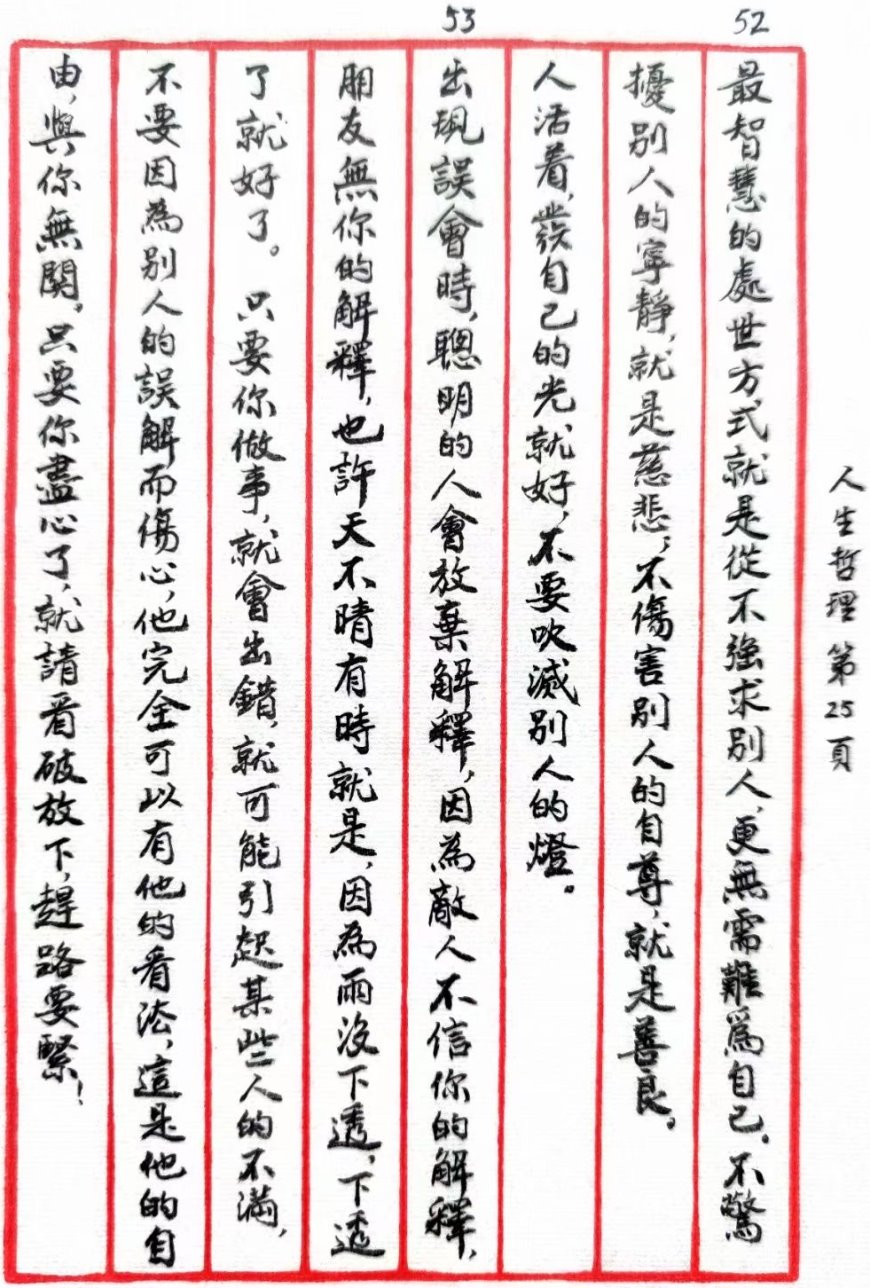 人生哲理 第25頁
52
最智慧的處世方式就是從不強求別人,更無需難爲自己。不驚
擾別人的寧靜,就是慈悲;不傷害別人的自尊,就是善良。
人活着,發自己的光就好,不要吹滅別人的燈。
53
出現誤會時,聰明的人會放棄解釋,因為敵人不信你的解釋,
朋友無你的解釋,也許天不晴有時就是,因為雨没下透,下透
了就好了。只要你做事,就會出錯,就可能引起某些人的不滿,
不要因為別人的誤解而傷心,他完全可以有他的看法,這是他的自
由,與你無關,只要你盡心了,就請看破放下,趕路要緊!